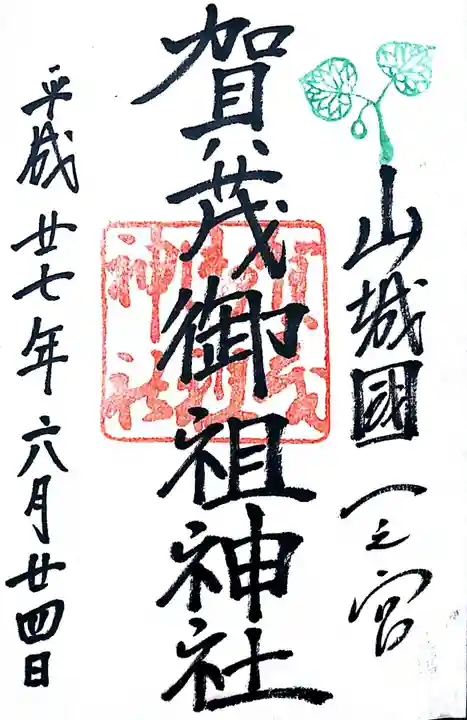 山城國一之宮
賀茂御祖神社
平成廿七年六月廿四日
賀茂御祖神社